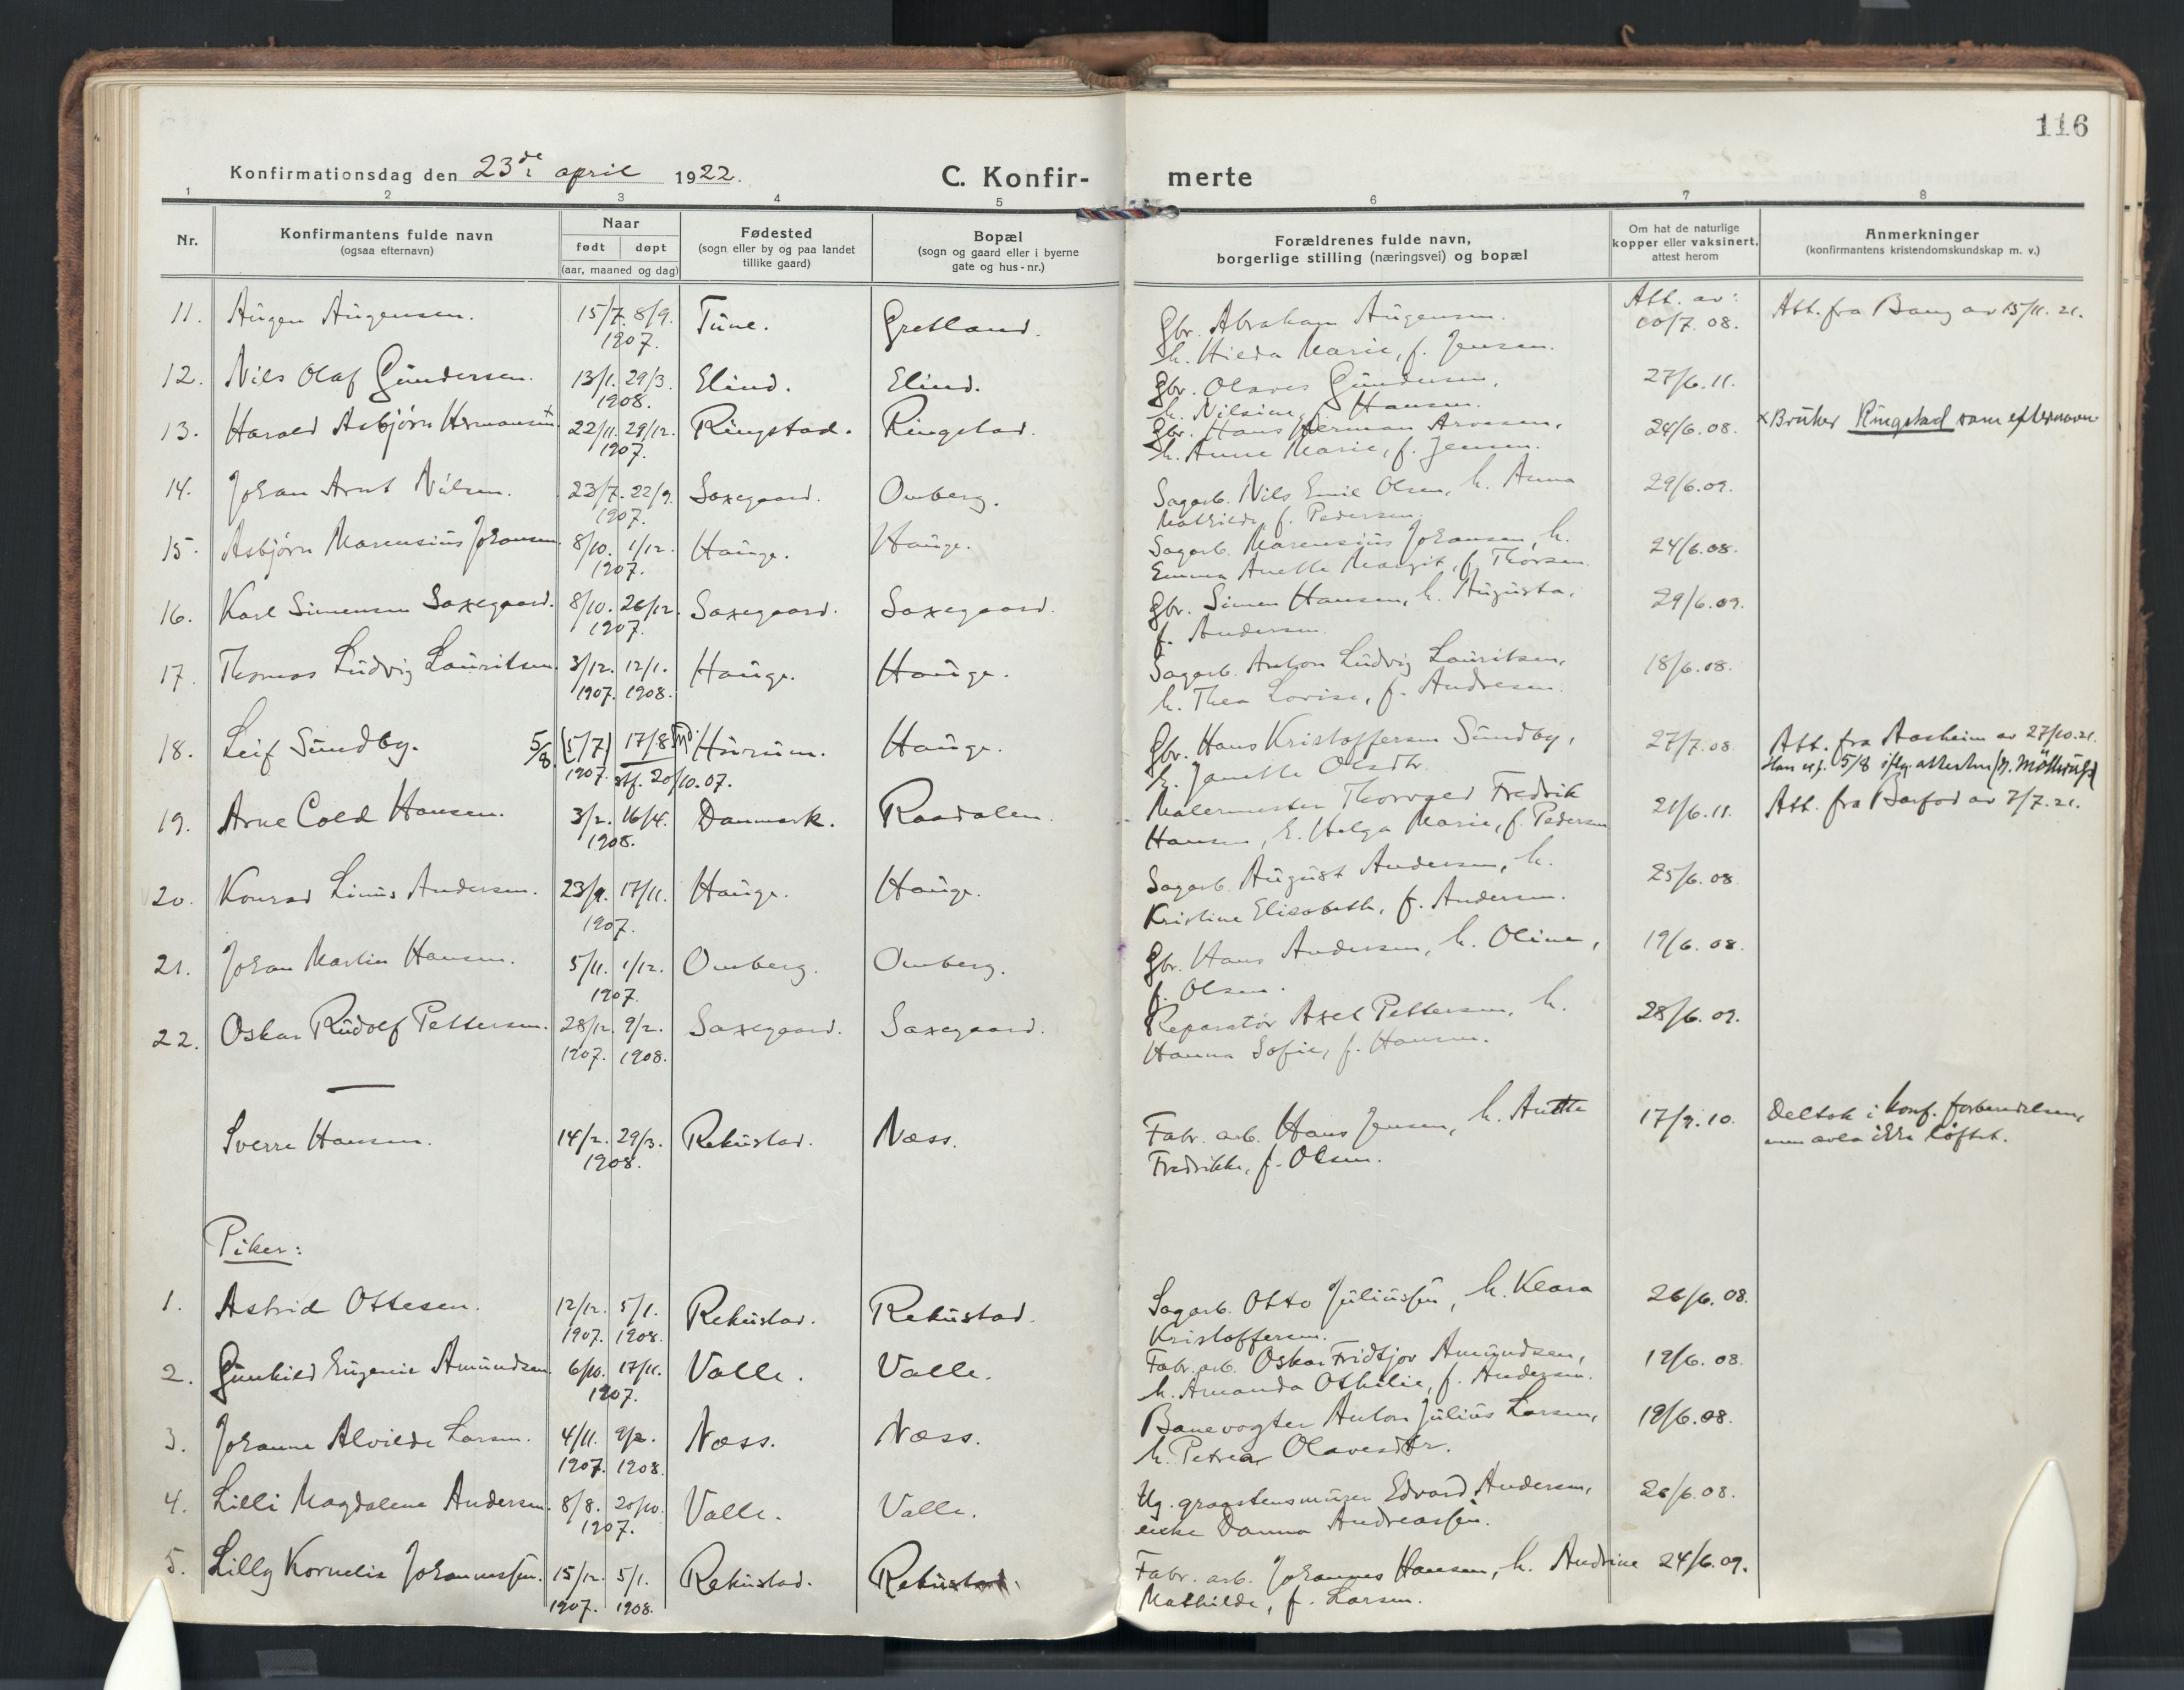 116
Konfirmationsdag den 23de april 1922.
C. Konfir- merte
1 2 3 4 5 6 7 8
Nr.
Konfirmantens fulde navn
(ogsaa efternavn)
Naar
født døpt
(aar, maaned og dag)
Fødested
(sogn eller by og paa landet
tillike gaard)
Bopæl
(sogn og gaard eller i byerne
gate og hus-nr.)
Forældrenes fulde navn,
borgerlige stilling (næringsvei) og bopæl
Om hat de naturlige
kopper eller vaksinert,
attest herom
Anmerkninger
(konfirmantens kristendomskundskap m. v.)
11. Aŭgen Aŭgensen. 15/7. 8/9. Tŭne. Gretland. Gbr. Abraham Aŭgensen. Att. av: Att. fra Bang av 15/11. 21.
1907. h. Hilda Marie, f. Jensen. 20/7. 08.
12. Nils Olaf Gŭndersen. 13/1. 29/3. Elind. Elind. Gbr. Olaves Gŭndersen, 27/6. 11.
1908. h. Nilsine, f. Hansen.
13. Harald Asbjørn Hermansen x 22/11. 29/12. Ringstad. Ringstad. Gbr. Hans Herman Arvesen, 24/6. 08. x Brŭker Ringstad som efternavn.
1907. h. Anne Marie, f. Jensen.
14. Johan Arnt Nilsen. 23/7. 22/9. Saxegaard. Omberg. Sagarb. Nils Emil Olsen, h. Anna 29/6. 09.
1907. Mathilde, f. Pedersen.
15. Asbjørn Marensiŭs Johansen. 8/10. 1/12. Haŭge. Haŭge. Sagarb. Marensiŭs Johansen, h. 24/6. 08.
1907. Emma Anette Margit, f. Thorsen.
16. Karl Simensen Saxegaard. 8/10. 26/12. Saxegaard. Saxegaard. Gbr. Simen Hansen, h. Aŭgŭsta, 29/6. 09.
1907. f. Andersen.
17. Thomas Lŭdvig Laŭritsen. 3/12. 12/1. Haŭge. Haŭge. Sagarb. Anton Lŭdvig Laŭritsen, 18/6. 08.
1907. 1908. h. Thea Lovise, f. Andresen.
18. Leif Sŭndby. 5/8. (5/7) 17/8 Hŭrŭm. Haŭge. Gbr. Hans Kristoffersen Sŭndby, 27/7. 08. Att. fra Aasheim av 27/10. 21.
1907. stf. 20/10. 07. h. Janette Olsdtr. Han er f. 5/8 iflg. attesten
19. Arne Cold Hansen. 3/2. 16/4. Danmark. Raadalen. Malermester Thorvald Fredrik 21/6. 11. Att. fra Barfod av 7/7. 21.
1908. Hansen, h. Helga Marie, f. Pedersen
20. Konrad Liniŭs Andersen. 23/9. 17/11. Haŭge. Haŭge. Sagarb. Aŭgŭst Andersen, h. 25/6. 08.
1907. Kristine Elisabeth, f. Andersen.
21. Johan Martin Hansen. 5/11. 1/12. Omberg. Omberg. Gbr. Hans Andersen, h. Oline, 19/6. 08.
1907. f. Olsen.
22. Oskar Rŭdolf Pettersen. 28/12. 9/2. Saxegaard. Saxegaard. Reparatør Axel Pettersen, h. 28/6. 09.
1907. 1908. Hanna Sofie, f. Hansen.
Sverre Hansen. 14/2. 29/3. Rekŭstad. Næss. Fabr. arb. Hans Jensen, h. Anette 17/9. 10. Deltok i konf. forberedelsen,
1908. Fredrikke, f. Olsen. men avla ikke løftet.
Piker:
1. Astrid Ottesen. 12/12. 5/1. Rekŭstad. Rekŭstad. Sagarb. Otto Jŭliŭssen, h. Klara 26/6. 08.
1907. 1908. Kristoffersen.
2. Gŭnhild Eŭgenie Amŭndsen. 6/10. 17/11. Valle. Valle. Fabr. arb. Oskar Fridtjov Amŭndsen, 19/6. 08.
1907. h. Amanda Othilie, f. Andersen.
3. Johanne Alvilde Larsen. 4/11. 9/2. Næss. Næss. Banevogter Anton Jŭliŭs Larsen, 19/6. 08.
1907. 1908. h. Petrea Olavesdtr.
4. Lilli Magdalene Andersen. 8/8. 20/10. Valle. Valle. Ug. graastensmŭrer Edvard Andersen, 26/6. 08.
1907. enke Danna Andreassen.
5. Lilly Kornelia Johannessen. 15/12. 5/1. Rekŭstad. Rekŭstad. Fabr. arb. Johannes Hansen, h. Andrine 24/6. 09.
1907. 1908. Mathilde, f. Larsen.